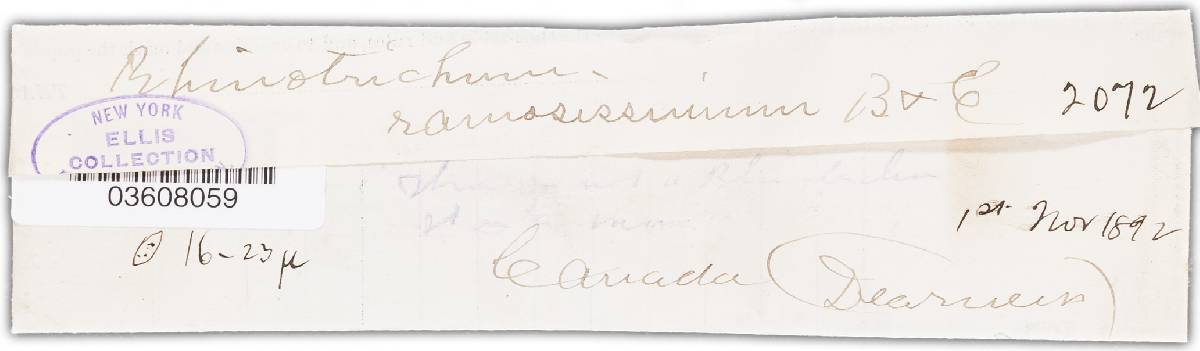 Rhinotrichum
ramosissimum B & C 2072
NEW YORK
ELLIS
COLLECTION
03608059
1st Nov 1892
16-23 µ
Canada (Dearness)